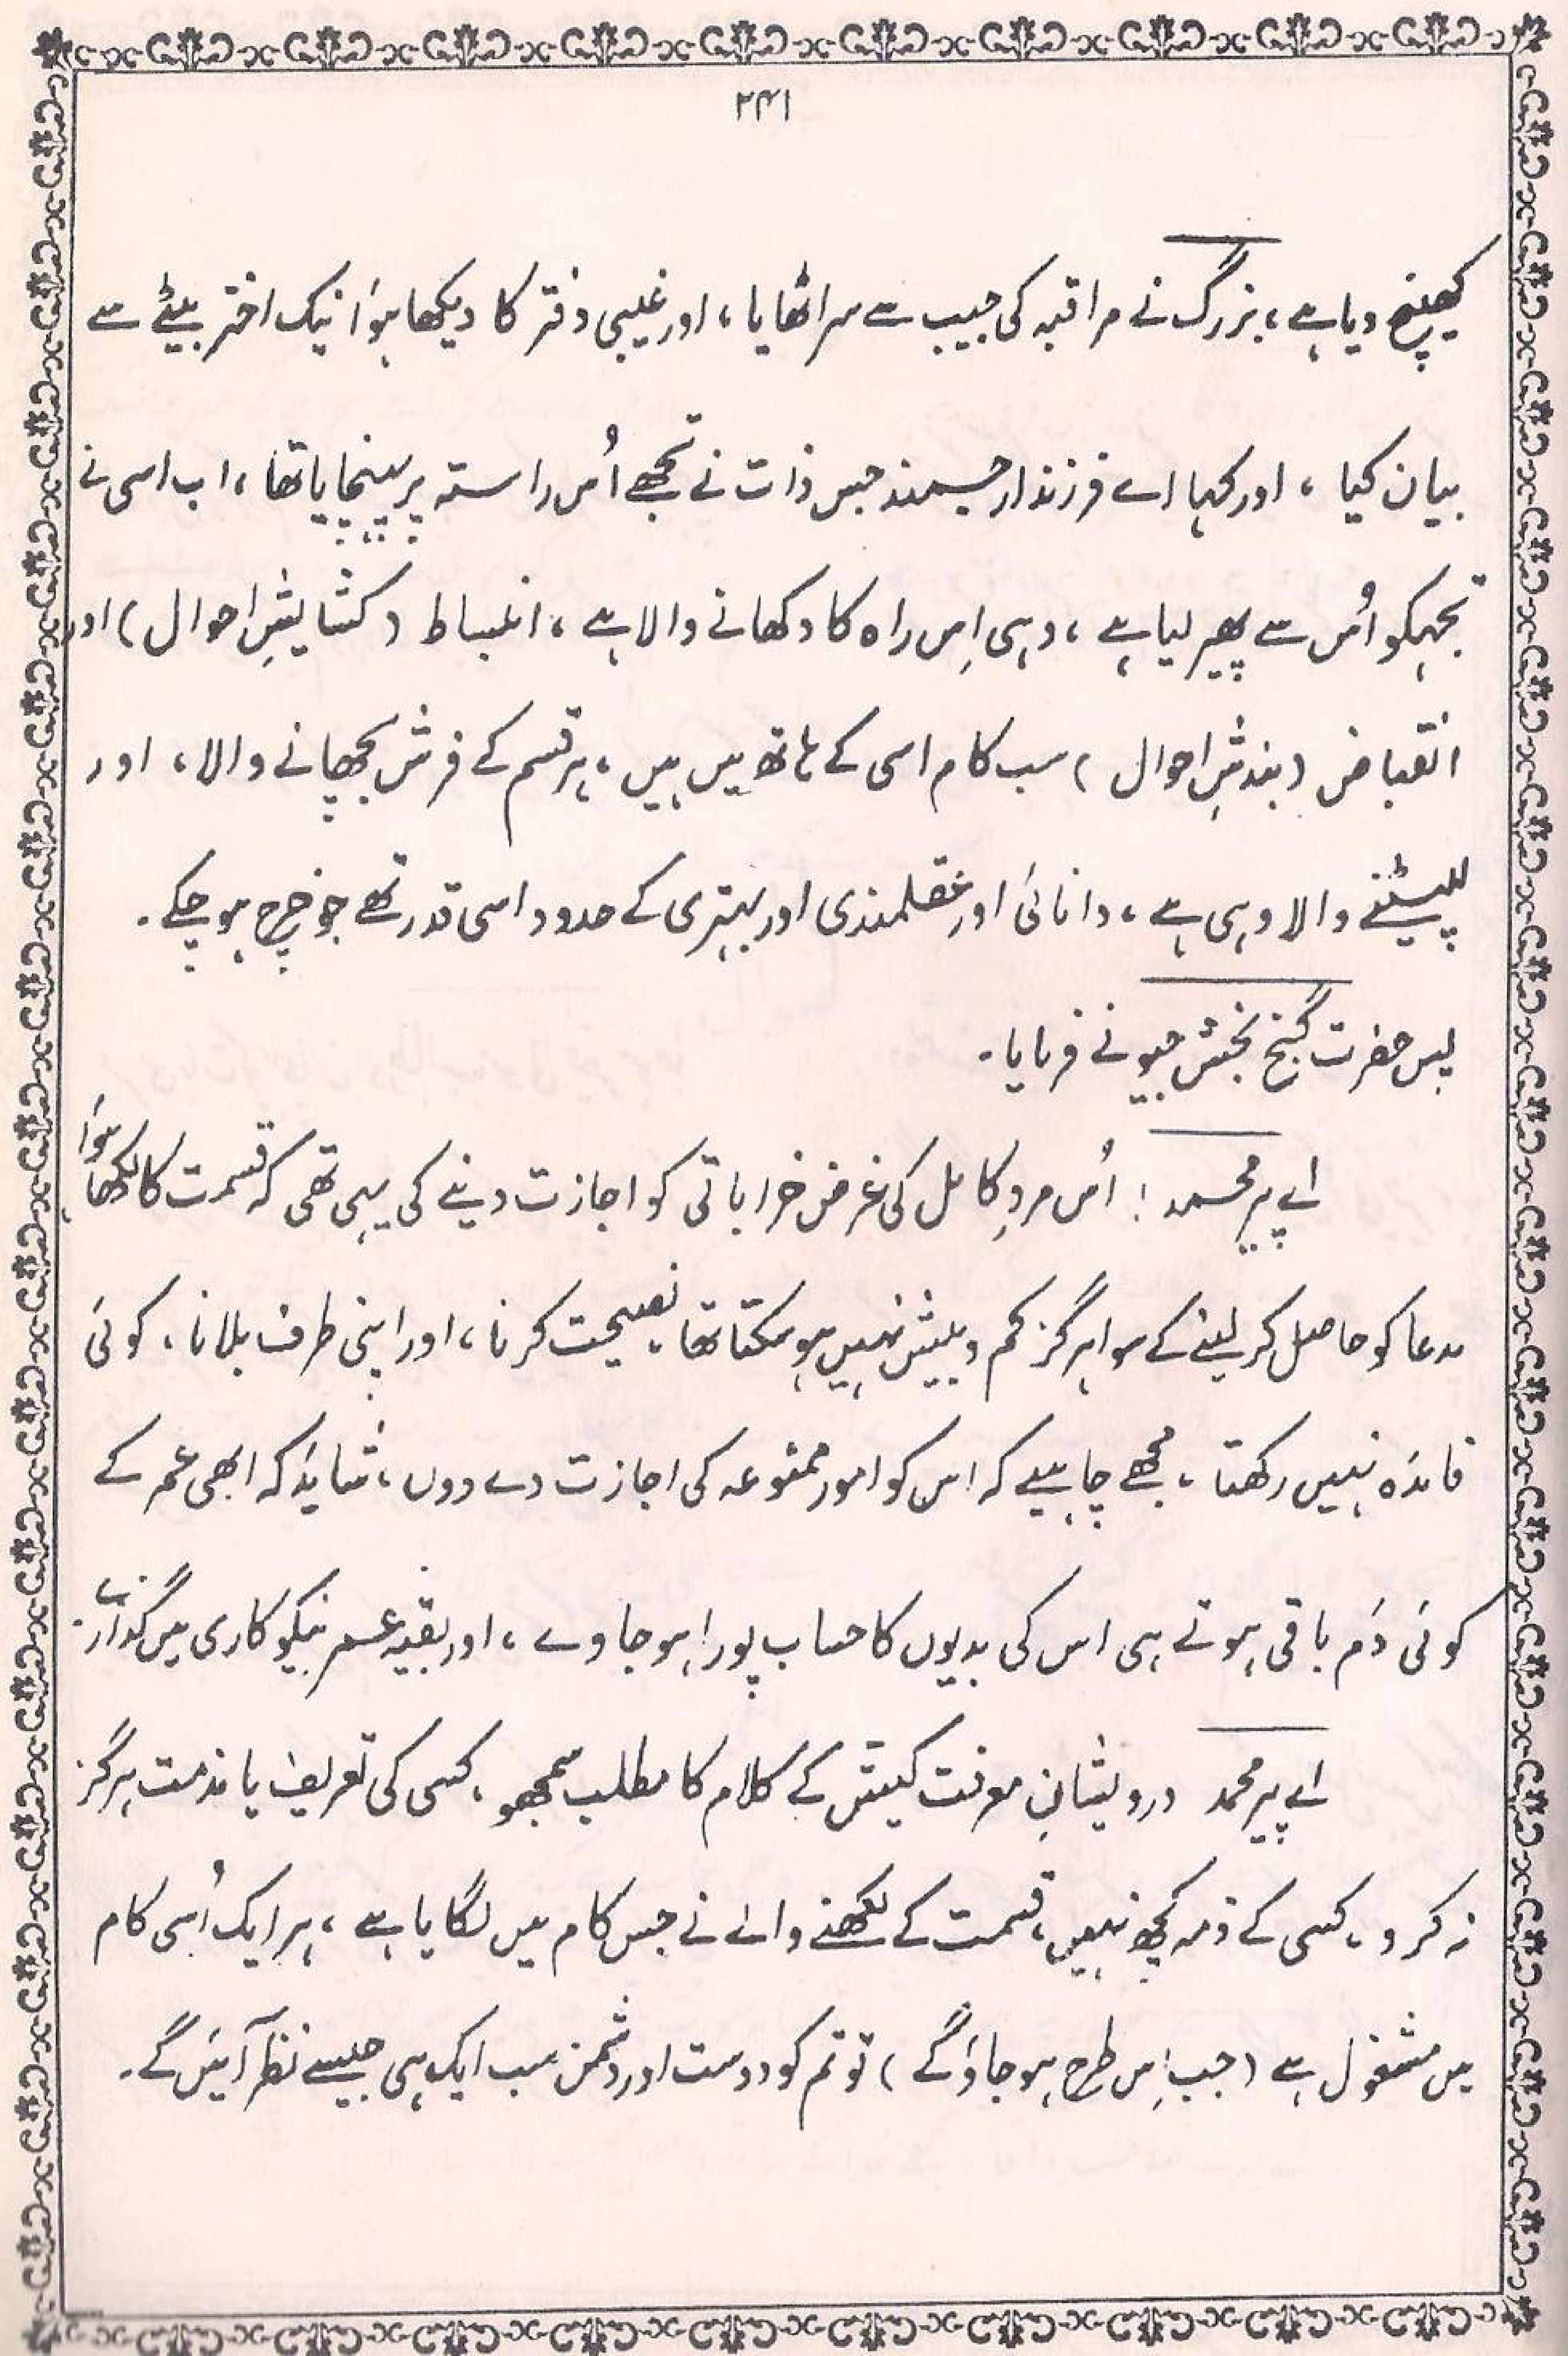 ۲۴۱
کھینچ دیا ہے، بزرگ نے مراقبہ کی جیب سے سر اٹھایا، اور غیبی دفتر کا دیکھا ہوَا نیک اختر بیٹے سے
بیان کیا، اور کہا اے فرزند ارجمند جس ذات نے تجھے اُس راستہ پر پہنچایا تھا، اب اسی نے
تجہکو اُس سے پھیر لیا ہے، وہی اِس راہ کا دکھانے والا ہے، انبساط (کشایشِ احوال) اور
انقباض (بندشِ احوال) سب کام اسی کے ہاتھ میں ہیں، ہر قسم کے فرش بچھانے والا، اور
لپیٹنے والا وہی ہے، دانائی اور عقلمندی اور بہتری کے حدود اسی قدر تھے جو خرچ ہو چکے۔
پس حضرت گنج بخش جیو نے فرمایا۔
اے پیر محمد! اُس مردِ کامل کی غرض خراباتی کو اجازت دینے کی یہی تھی کہ قسمت کا لکھا ہوَا
مدعا کو حاصل کر لینے کے سوا ہرگز کم و بیش نہیں ہو سکتا تھا، نصیحت کرنا، اور اپنی طرف بلانا، کوئی
فائدہ نہیں رکھتا، مجھے چاہیے کہ اس کو امور ممنوعہ کی اجازت دے دوں، شاید کہ ابھی عمر کے
کوئی دَم باقی ہوتے ہی اس کی بدیوں کا حساب پورا ہو جاوے، اور بقیہ عمر نیکوکاری میں گذارے۔
اے پیر محمد درویشانِ معرفت کیش کے کلام کا مطلب سمجھو، کسی کی تعریف یا مذمت ہرگز
نہ کرو، کسی کے ذمہ کچھ نہیں، قسمت کے لکھنے والے نے جس کام میں لگایا ہے، ہر ایک اُسی کام
میں مشغول ہے (جب اِس طرح ہو جاؤ گے) تو تم کو دوست اور دشمن سب ایک ہی جیسے نظر آئیں گے۔